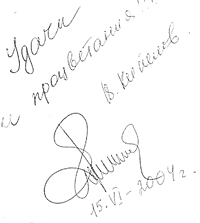 Удачи
и процветания!!!
В. Кипелов.
15.VI-2004г.